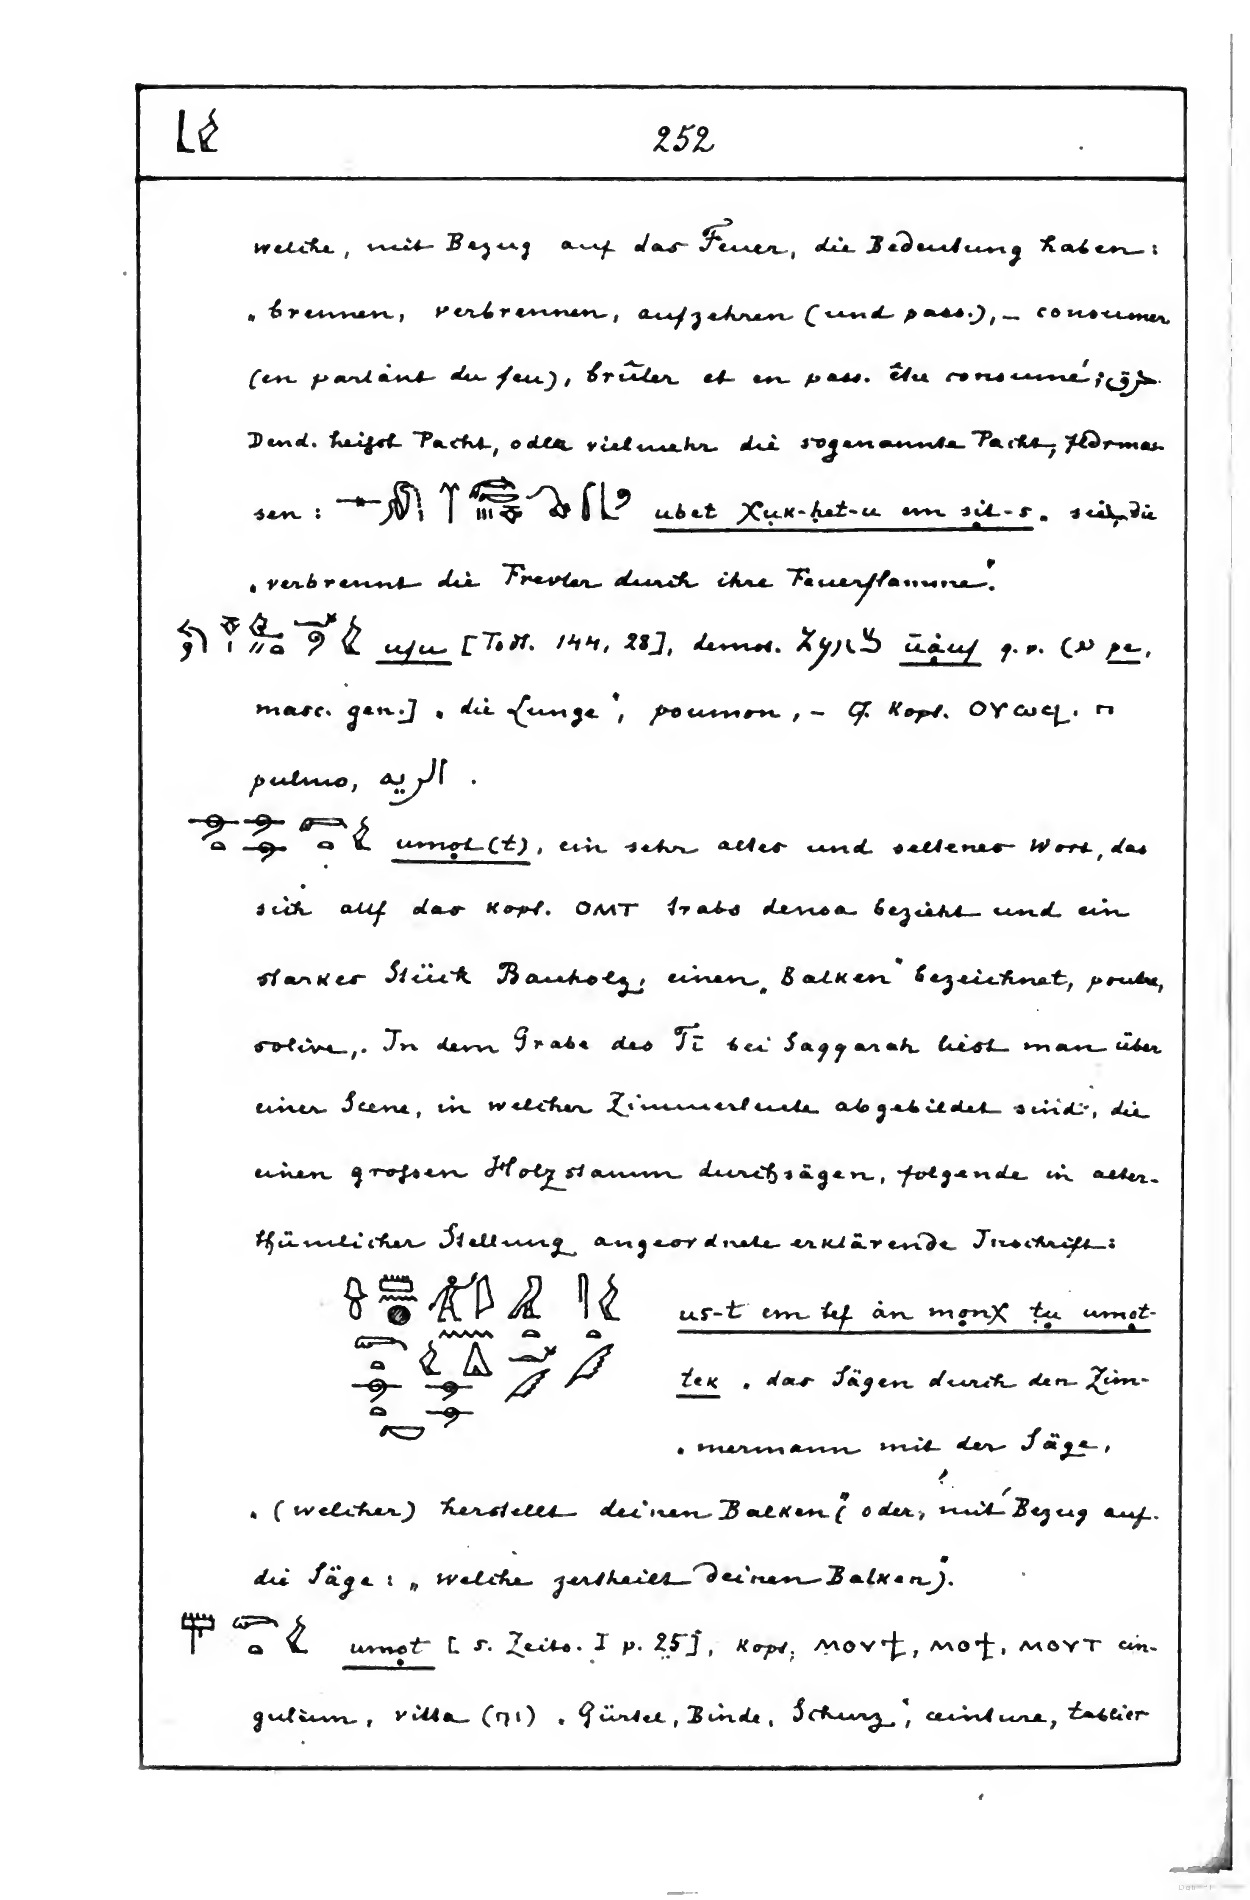 252
welche, mit Bezug auf das Feuer, die Bedeutung haben:
„brennen, verbrennen, aufzehren (und pass.), – consumer
(en parlant du feu), brûler et en pass. être consumé; حرق.
Dend. heifst Pacht, oder vielmehr die sogenannte Pacht,
sen: ubet χuk-ḥet-u em sit-s. sie, die
„verbrennt die Frevler durch ihre Feuerflamme“.
ufu [Todt. 144, 28], demot. ūȧuf q. v. (pe,
masc. gen.] „die Lunge“, poumon, – cf. Kopt. ΟΥωϥ. п
pulmo, الريه .
umot(t), ein sehr altes und seltenes Wort, das
sich auf das Kopt. ΟΜΤ trabs densa bezieht und ein
starkes Stück Bauholz, einen „Balken“ bezeichnet, poutre,
solive,. In dem Grabe des Tī bei Saqqarah liest man über
einer Scene, in welcher Zimmerleute abgebildet sind, die
einen grofsen Holzstamm durchsägen, folgende in alter-
thümlicher Stellung angeordnete erklärende Inschrift:
us-t em tef ȧn monχ tu umot-
tek „das Sägen durch den Zim-
„mermann mit der Säge,
„(welcher) herstellt deinen Balken“ (oder, mit Bezug auf
die Säge: „welche zertheilt deinen Balken“).
umot [s. Zeits. I p. 25], Kopt. ΜΟΥϯ, ΜΟϯ, ΜΟΥΤ cin-
gulum, vitta (ⲡⲓ) „Gürtel, Binde, Schurz“, ceinture, tablier